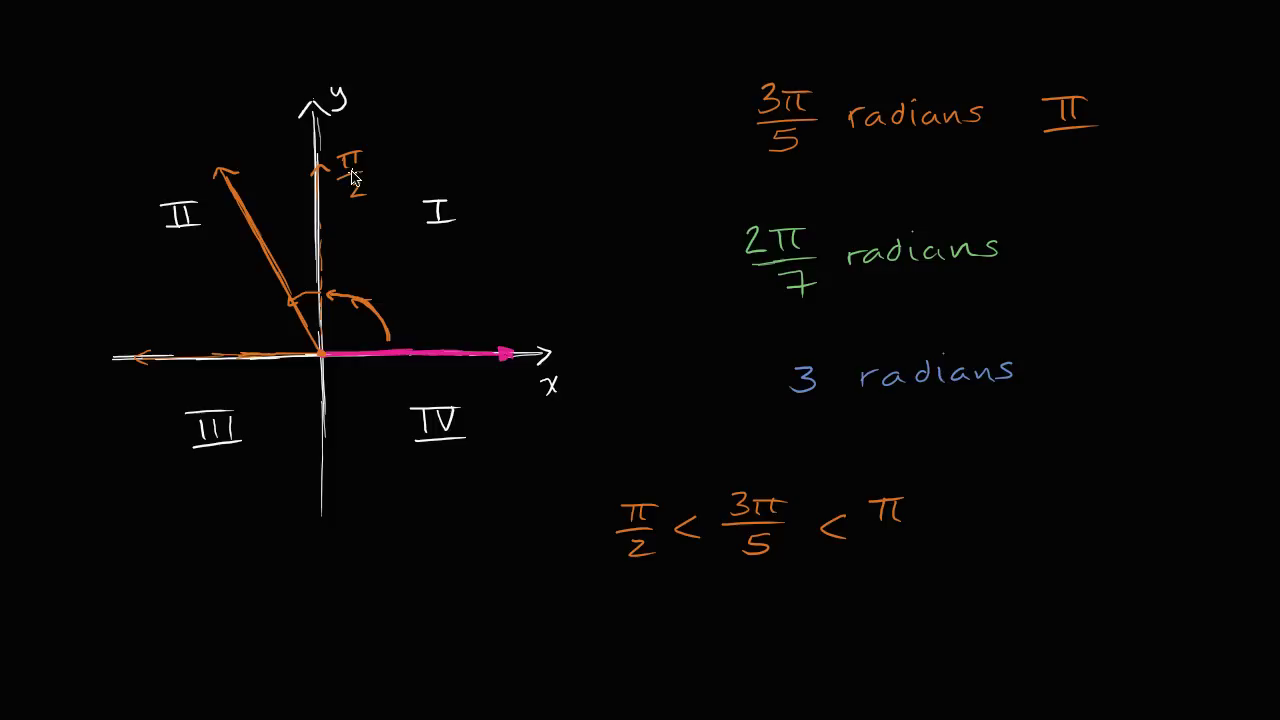 y
π/2
II
I
x
III
IV
3π/5 radians π
2π/7 radians
3 radians
π/2 < 3π/5 < π